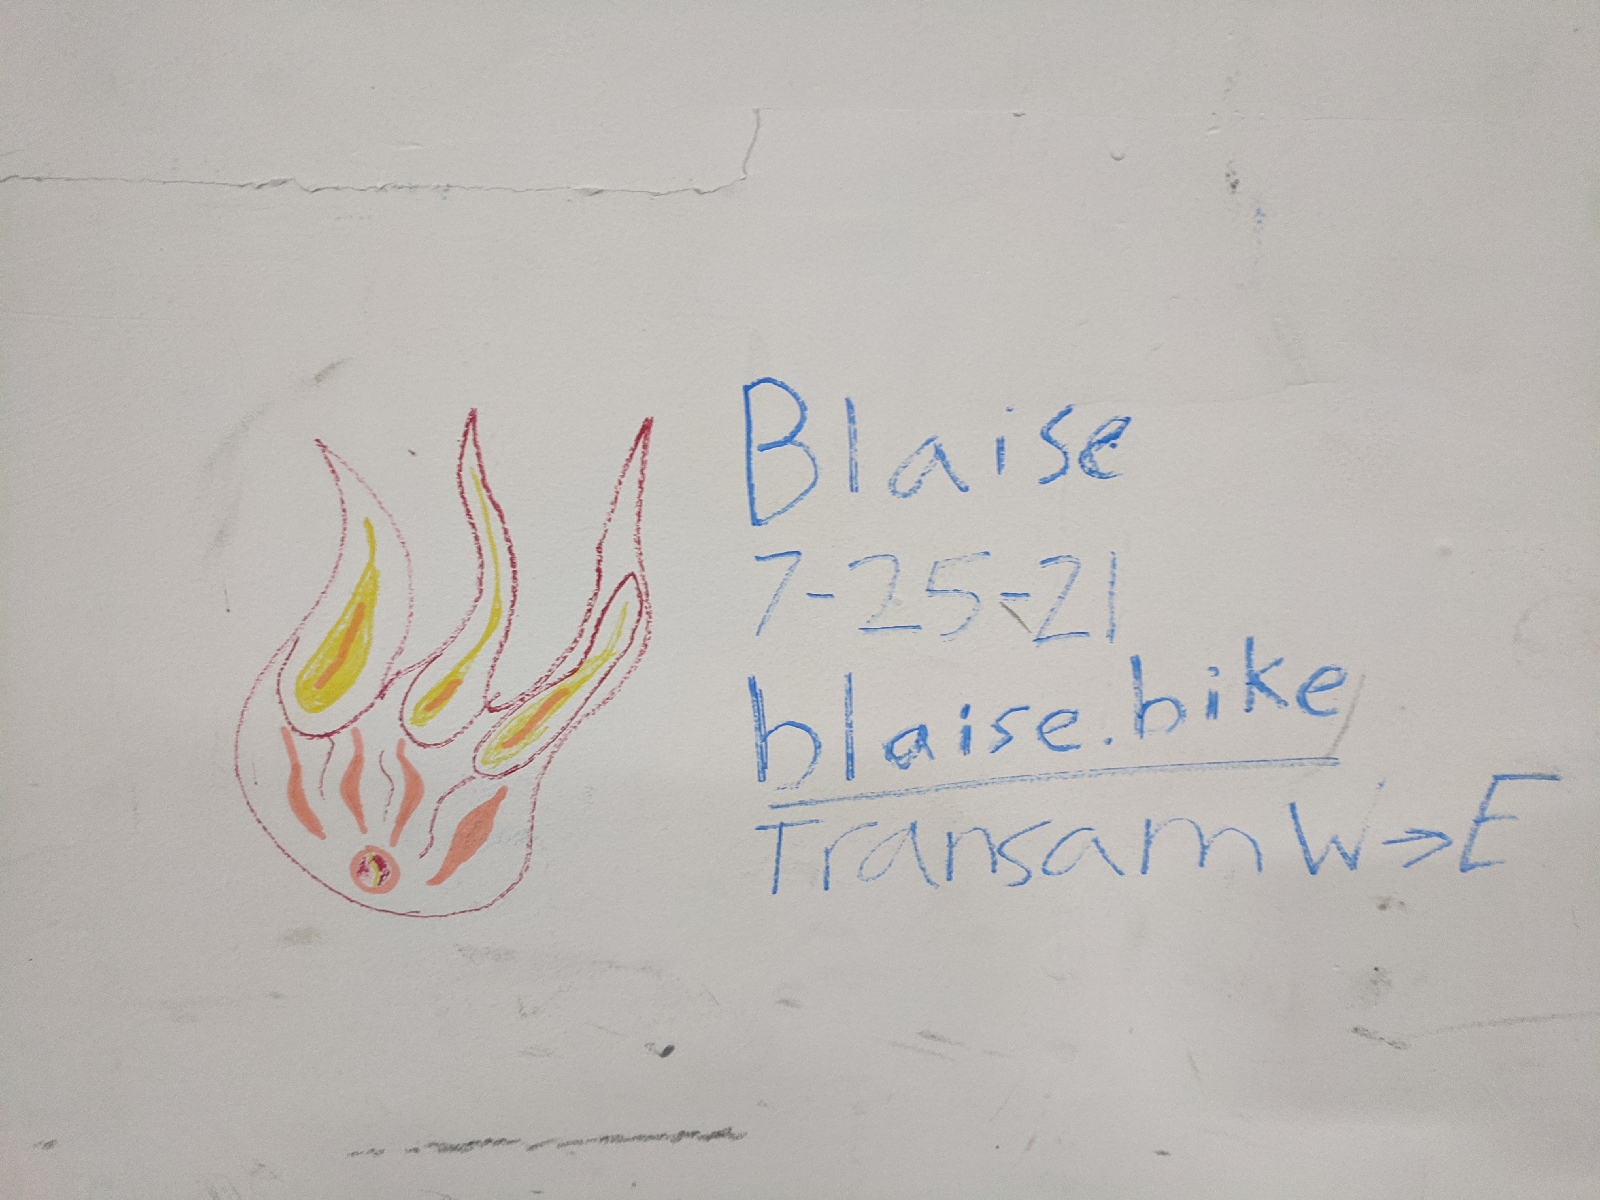 Blaise
7-25-21
blaise.bike
Transam W→E